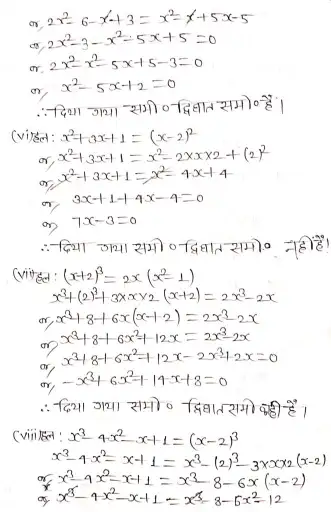 या, 2x² - 6 - x + 3 = x² - x + 5x - 5
या, 2x² - 3 - x² - 5x + 5 = 0
या, 2x² - x² - 5x + 5 - 3 = 0
या, x² - 5x + 2 = 0
∴ दिया गया समी० द्विघात समी० है।
(vi) हल: x² + 3x + 1 = (x - 2)²
या, x² + 3x + 1 = x² - 2×x×2 + (2)²
या, x² + 3x + 1 = x² - 4x + 4
या, 3x + 1 + 4x - 4 = 0
या, 7x - 3 = 0
∴ दिया गया समी० द्विघात समी० नहीं है।
(vii) हल: (x+2)³ = 2x (x² - 1)
x³ + (2)³ + 3×x×2 (x+2) = 2x³ - 2x
या, x³ + 8 + 6x (x + 2) = 2x³ - 2x
या, x³ + 8 + 6x² + 12x = 2x³ - 2x
या, x³ + 8 + 6x² + 12x - 2x³ + 2x = 0
या, -x³ + 6x² + 14x + 8 = 0
∴ दिया गया समी० द्विघात समी नहीं है।
(viii) हल: x³ - 4x² - x + 1 = (x - 2)³
x³ - 4x² - x + 1 = x³ - (2)³ - 3×x×2 (x - 2)
या, x³ - 4x² - x + 1 = x³ - 8 - 6x (x - 2)
या, x³ - 4x² - x + 1 = x³ - 8 - 6x² - 12